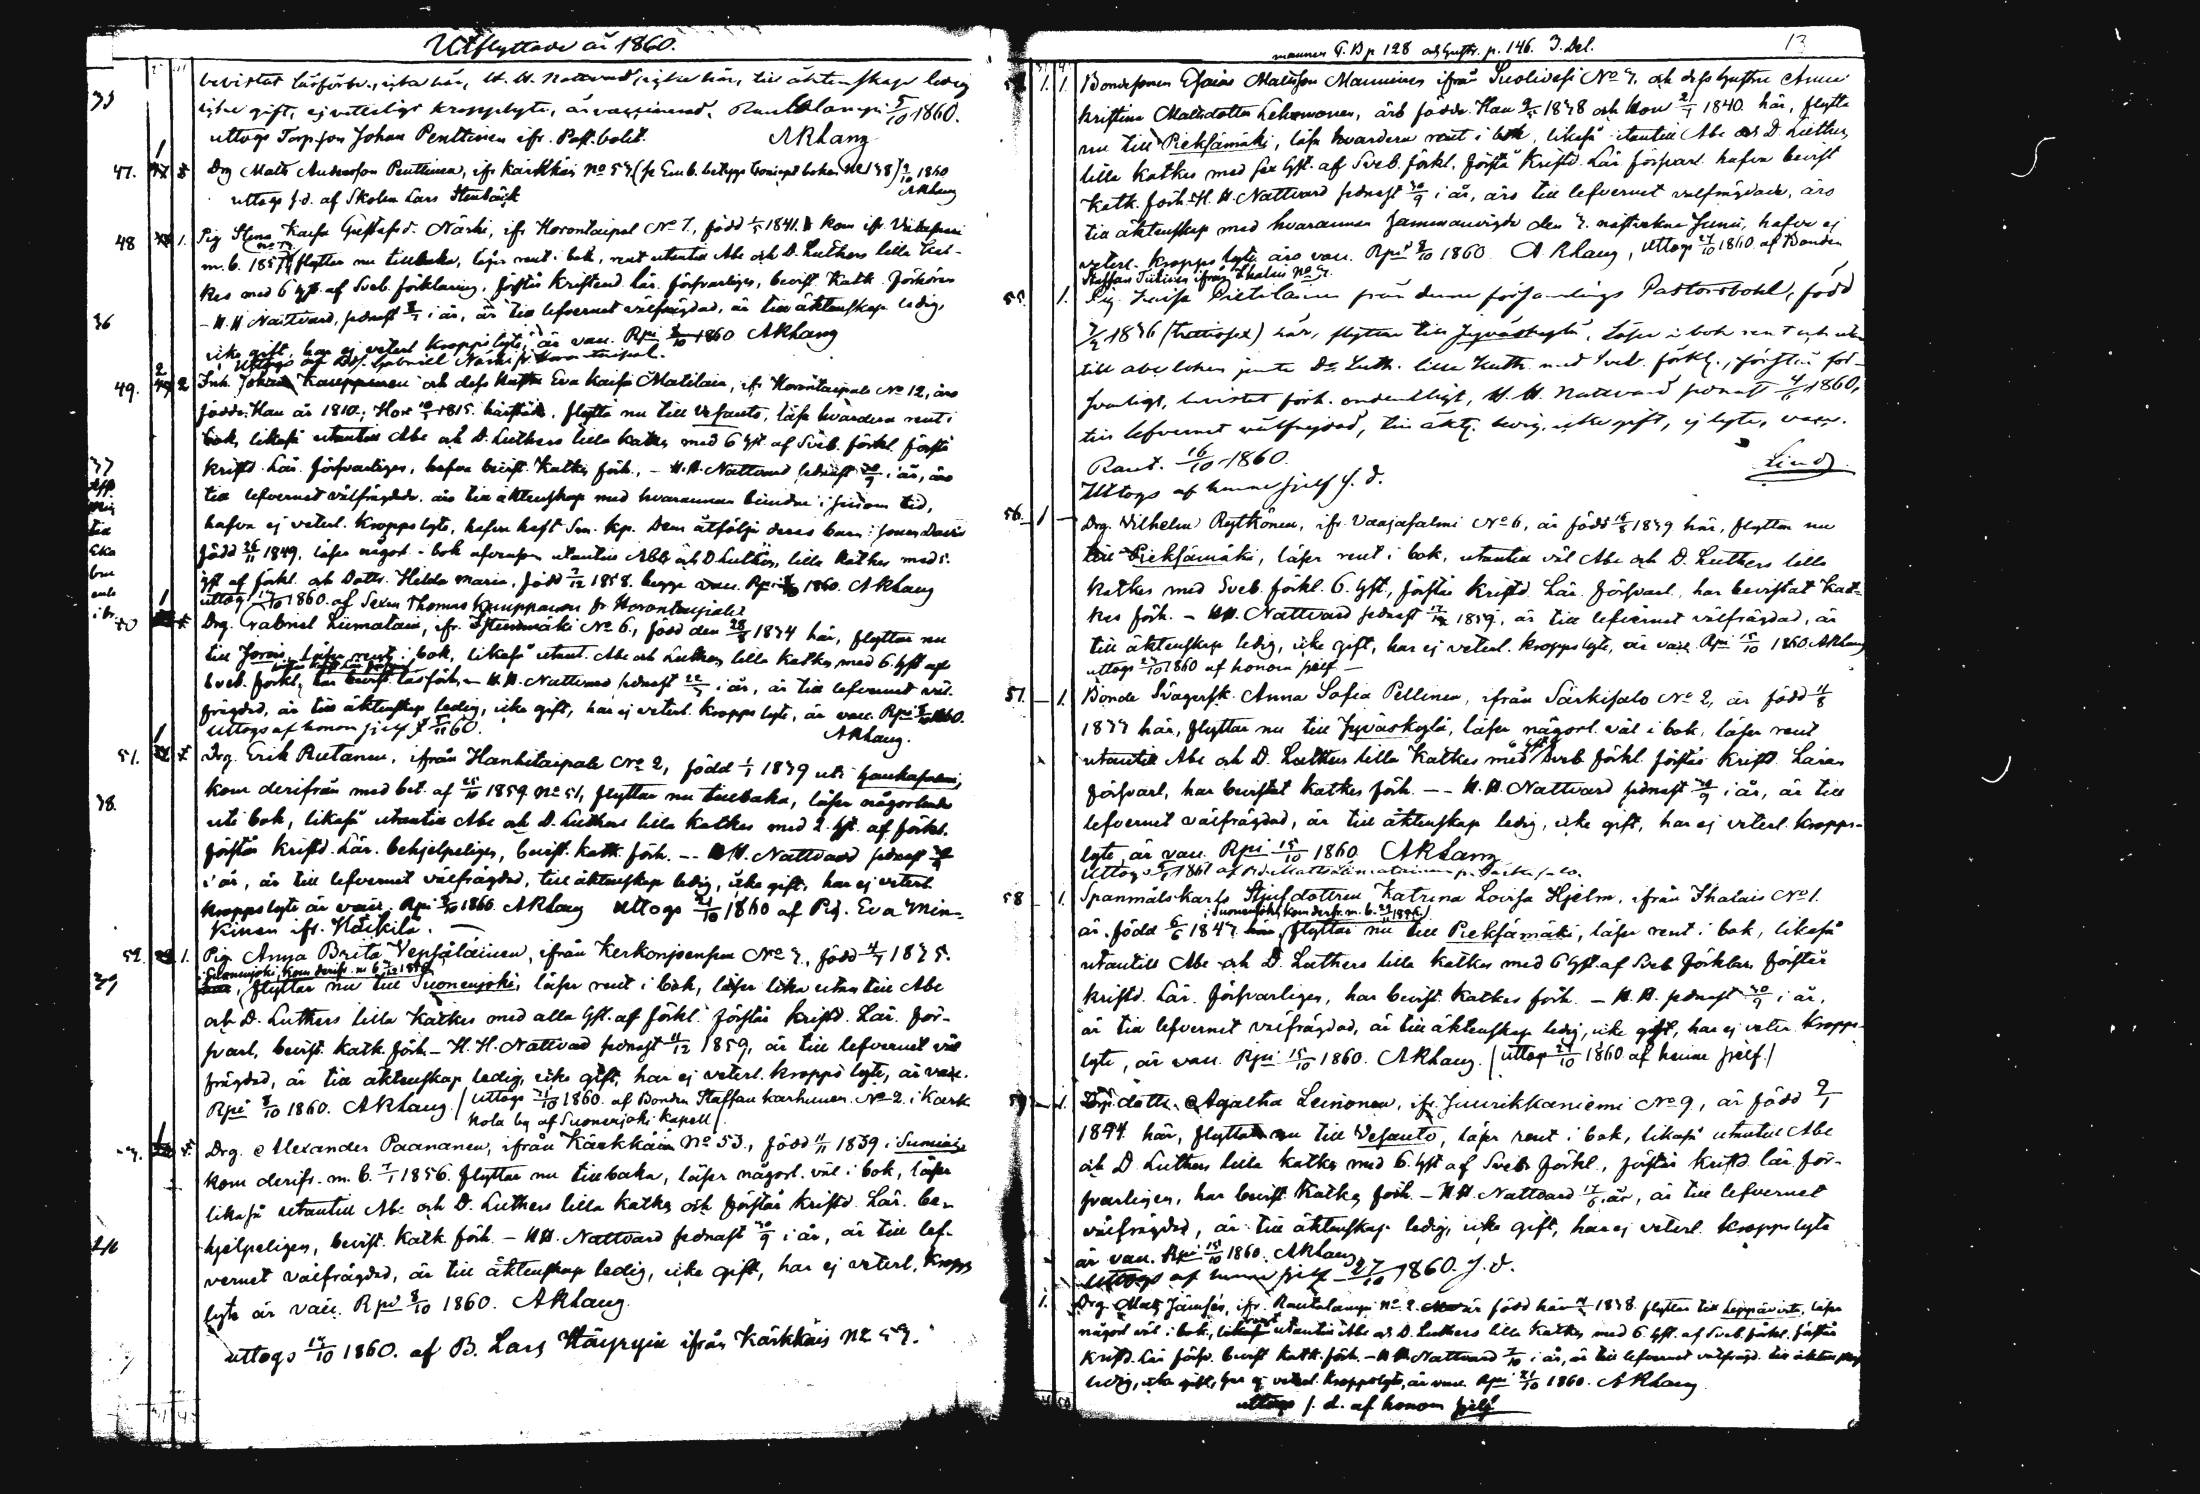 Utflyttade år 1860.
bevistat läsförh., icke här, H. H. Nattvard, icke här, till äktenskap ledig
icke gift, ej veterligt kroppslyte, är vaccinerad. Rautalampi 5/10 1860.
uttogs Torp.son Johan Penttinen ifr. Past. bolst. A R Lang
47. Drg Mats Andersson Penttinen, ifr Kärkkäis No 57 1860
A R Lang
uttogs j. d. af Skolm Lars Stenbäck
48 1. Pig Stina Kaisa Gustafsd. Närhi, ifr Horontaipal No 7, född 1841. kom ifr Vitasaari
m. b. 1857 flyttar nu tillbaka, läser rent i bok, rent utantill Abc och D. Luthers lilla Kat-
kes med 6 hst. af Sveb. förklaring, förstår Kristend. lär. försvarligen, bevist. Katk. förhören
- H. H Nattvard, sednast i år, är till lefvernet välfrägdad, är till äktenskap ledig,
icke gift, har ej veterl. kroppslyte, är vacc. Rpi 8/10 1860 A R Lang
Uttogs af Bds. Gabriel Närhi fr Horontaipal.
49. 2 Inh. Johan Kauppinen och dess hustru Eva Kaisa Matilain, ifr Horontaipale No 12, äro
födde, Han år 1810, Hon 1815. härstädes, flytta nu till Vesanto, läsa hvardera rent i
bok, likaså utantill Abc och D. Luthers lilla katkes med 6 hst af Sveb. förkl. förstå
kristd. Lär. försvarligen, hafva bevist. Katkes förh., - H. H. Nattvard sednast 30/9 i år, äro
till lefvernet välfrägdade. äro till äktenskap med hvarannan bundne i sinom tid,
hafva ej veterl. kroppslyte, hafva haft Sm. kp. Dem åtfölja deras barn: Jonas David
född 26/11 1849, läser någorl. i bok utantill Abc och D Luthers, lilla katkes med 5.
hst af förkl. och Dottr. Hilda Maria, född 7/12 1858. begge vacc. Rpi 8/10 1860 A R Lang
uttogs 1860. af Sexm Thomas Kauppinen fr Horontaipale
50 Drg. Gabriel Liimatain, ifr. No 6, född den 28 1834 här, flyttar nu
till Jorois, läser rent i bok, likaså utant. Abc och Luthers lilla katkes med 6 hst af
Sveb. förkl., har bevist. läsförh, - H. H. Nattvard sednast i år, är till lefvernet väl-
frägdad, är till äktenskap ledig, icke gift, har ej veterl. kroppslyte, är vacc. Rpi 1860.
uttogs af honom sjelf 60. A R Lang.
51. Drg. Erik Rutanen, ifrån Hankitaipale No 2, född 1/1 1839 uti Haukasaari,
kom derifrån med bet. af 25/10 1859 No 51, flyttar nu tillbaka, läser någorlunda
uti bok, likaså utantill Abc och D. Luthers lilla katkes med 2. hst. af förkl.
förstår kristd. Lär. behjelpeligen, bevist. katk. förh. - - H. H. Nattvard sednast
i år, är till lefvernet välfrägdad, till äktenskap ledig, icke gift, har ej veterl.
kroppslyte är vacc. Rpi 8/10 1860. A R Lang uttogs 21/10 1860 af Pig. Eva Min-
kinen ifr. Häikilä.
52. 1. Pig. Anna Brita Vepsäläinen, ifrån Kerkonjoensuu No 7, född 4/1 1835.
i Suonenjoki, kom derifr. m. b.
flyttar nu till Suonenjoki, läser rent i bok, läser lika utantill Abc
och D. Luthers lilla Katkes med alla hst. af förkl. förstår kristd. Lär. för-
svarl, bevist. katk. förh. - H. H. Nattvard sednast 11/12 1859, är till lefvernet väl
frägdad, är till äktenskap ledig, icke gift, har ej veterl. kropps lyte, är vacc.
Rpi 8/10 1860. A R Lang / uttogs 21/10 1860. af Bonden Staffan Karhunen No 2 i Kark
kola by af Suonenjoki Kapell /
Drg. Alexander Paananen, ifrån Kärkkäis No 53., född 11/11 1839 i Sumiais
kom derifr. m. b. 7/1 1856. flyttar nu tillbaka, läser någorl. väl i bok, läser
likaså utantill Abc och D. Luthers lilla katkes och förstår kristd. Lär. be-
hjelpeligen, bevist. katk. förh. - H. H. Nattvard sednast 30/9 i år, är till lef-
vernet välfrägdad, är till äktenskap ledig, icke gift, har ej veterl. kropps
lyte är vacc. Rpi 8/10 1860. A R Lang.
uttogs 14/10 1860. af B. Lars Häyrynin ifrån Kärkkäis No 59.
mannen T. B p 128 och hustr. p. 146. I. Del. 13
1. 1. Bondesonen Esaias Matsson Manninen ifrån Suolivesi No 7. och dess hustru Anna
Kristina Matsdotter Lehmonen, äro födde Han 1838 och hon 21/1 1840. här, flytta
nu till Pieksämäki, läsa hvardera rent i bok, likaså utantill Abc och D. Luthers
lilla katkes med sex hst. af Sveb. förkl. förstå Kristd. Lär försvarl. hafva bevist
Katk. förh. H. H. Nattvard sednast 30/9 i år, äro till lefvernet välfrägdade, äro
till äktenskap med hvarannan sammanvigde den 7. nästvekna Junii, hafva ej
veterl. kropps lyte äro vacc. Rpi 8/10 1860 A R Lang, Uttogs 24/10 1860. af Bonden
Staffan Tiilives ifrån Ihalais No 7.
55. 1. Pig. Kaisa Pietiläinen från denna församlings Pastorsbohl, född
1836 (trettiosex) här, flyttar till Jyväskylä, läser i bok rent och utan
till abc boken jemte Dr Luth. lilla Kath. med Sveb. förkl., förstår för-
svarligt, bevistat förh. ordentligt, H. H. Nattvard sednast 4/6 1860,
till lefvernet wälfrejdad, till äkt. ledig, icke gift, ej lyte, vacc.
Raut. 16/10 1860. Lind
Uttogs af henne sjelf J. d.
56. 1 Drg. Vilhelm Rytkönen, ifr. Vaajasalmi No 6, är född 1839 här, flyttar nu
till Pieksämäki, läser rent i bok, utantill väl Abc och D. Luthers lilla
katkes med Sveb. förkl. 6. hst, förstår kristd. Lär. försvarl, har bevistat kat-
kes förh. - H. H. Nattvard sednast 17/12 1859, är till lefvernet välfrägdad, är
till äktenskap ledig, icke gift, har ej veterl. kroppslyte, är vacc Rpi 15/10 1860 A R Lang
uttogs 27/10 1860 af honom sjelf -
57. 1. Bonde Svägersk. Anna Sofia Pellinen, ifrån Särkisalo No 2, är född 11/8
1837 här, flyttar nu till Jyväskylä, läser någorl. väl i bok, läser rent
utantill Abc och D. Luthers lilla Katkes med 6 hst Sveb. förkl. förstår Kristd. Läran
försvarl, har bevistat katkes förh. - - H. H. Nattvard sednast 30/9 i år, är till
lefvernet välfrägdad, är till äktenskap ledig, icke gift, har ej veterl. kropps-
lyte, är vacc. Rpi 15/10 1860. A R Lang
58 1. Spanmålskarls Stjufdottren Katrina Lovisa Hjelm, ifrån Ihalais No 1.
i Suonenjoki, kom derfr. m. b.
är född 6/6 1847 flyttar nu till Pieksämäki, läser rent i bok, likaså
utantill Abc och D. Luthers lilla katkes med 6 hst. af Sveb förklar, förstår
kristd. Lär. försvarligen, har bevist. katkes förh. - H. H. sednast 30/9 i år,
är till lefvernet välfrägdad, är till äktenskap ledig, icke gift, har ej veter. kropps-
lyte, är vacc. Rpi 15/10 1860. A R Lang. / uttogs 27/10 1860 af henne sjelf. /
59 1. dottr. Agatha Leinonen, ifr. Juurikkaniemi No 9, är född 9/1
1844 här, flyttar nu till Vesanto, läser rent i bok, likaså utantill Abc
och D Luthers lilla katkes med 6. hst af Sveb. förkl., förstår kristd. lär för-
svarligen, har bevist. katkes förh. - H H. Nattvard 17/6 i år, är till lefvernet
välfrägdad, är till äktenskap ledig, icke gift, har ej veterl. kropps lyte
är vacc. Rpi 15/10 1860. A R Lang
Uttogs af henne sjelf 27/10 1860. J. d.
1. Drg Mats Jämsén, ifr. Rautalampi No 2. är född här 1838. flyttar till Leppävirta, läser
någorl väl i bok, utantill Abc och D. Luthers lilla katkes med 6. hst. af Sveb. förkl. förstår
kristd. lär försv. bevist katk. förh. - H H. Nattvard 7/10 i år, är till lefvernet välfrägd. till äktenskap
ledig, icke gift, har ej veterl. kroppslyte, är vacc. Rpi 21/10 1860. A R Lang
uttogs j. d. af honom sjelf